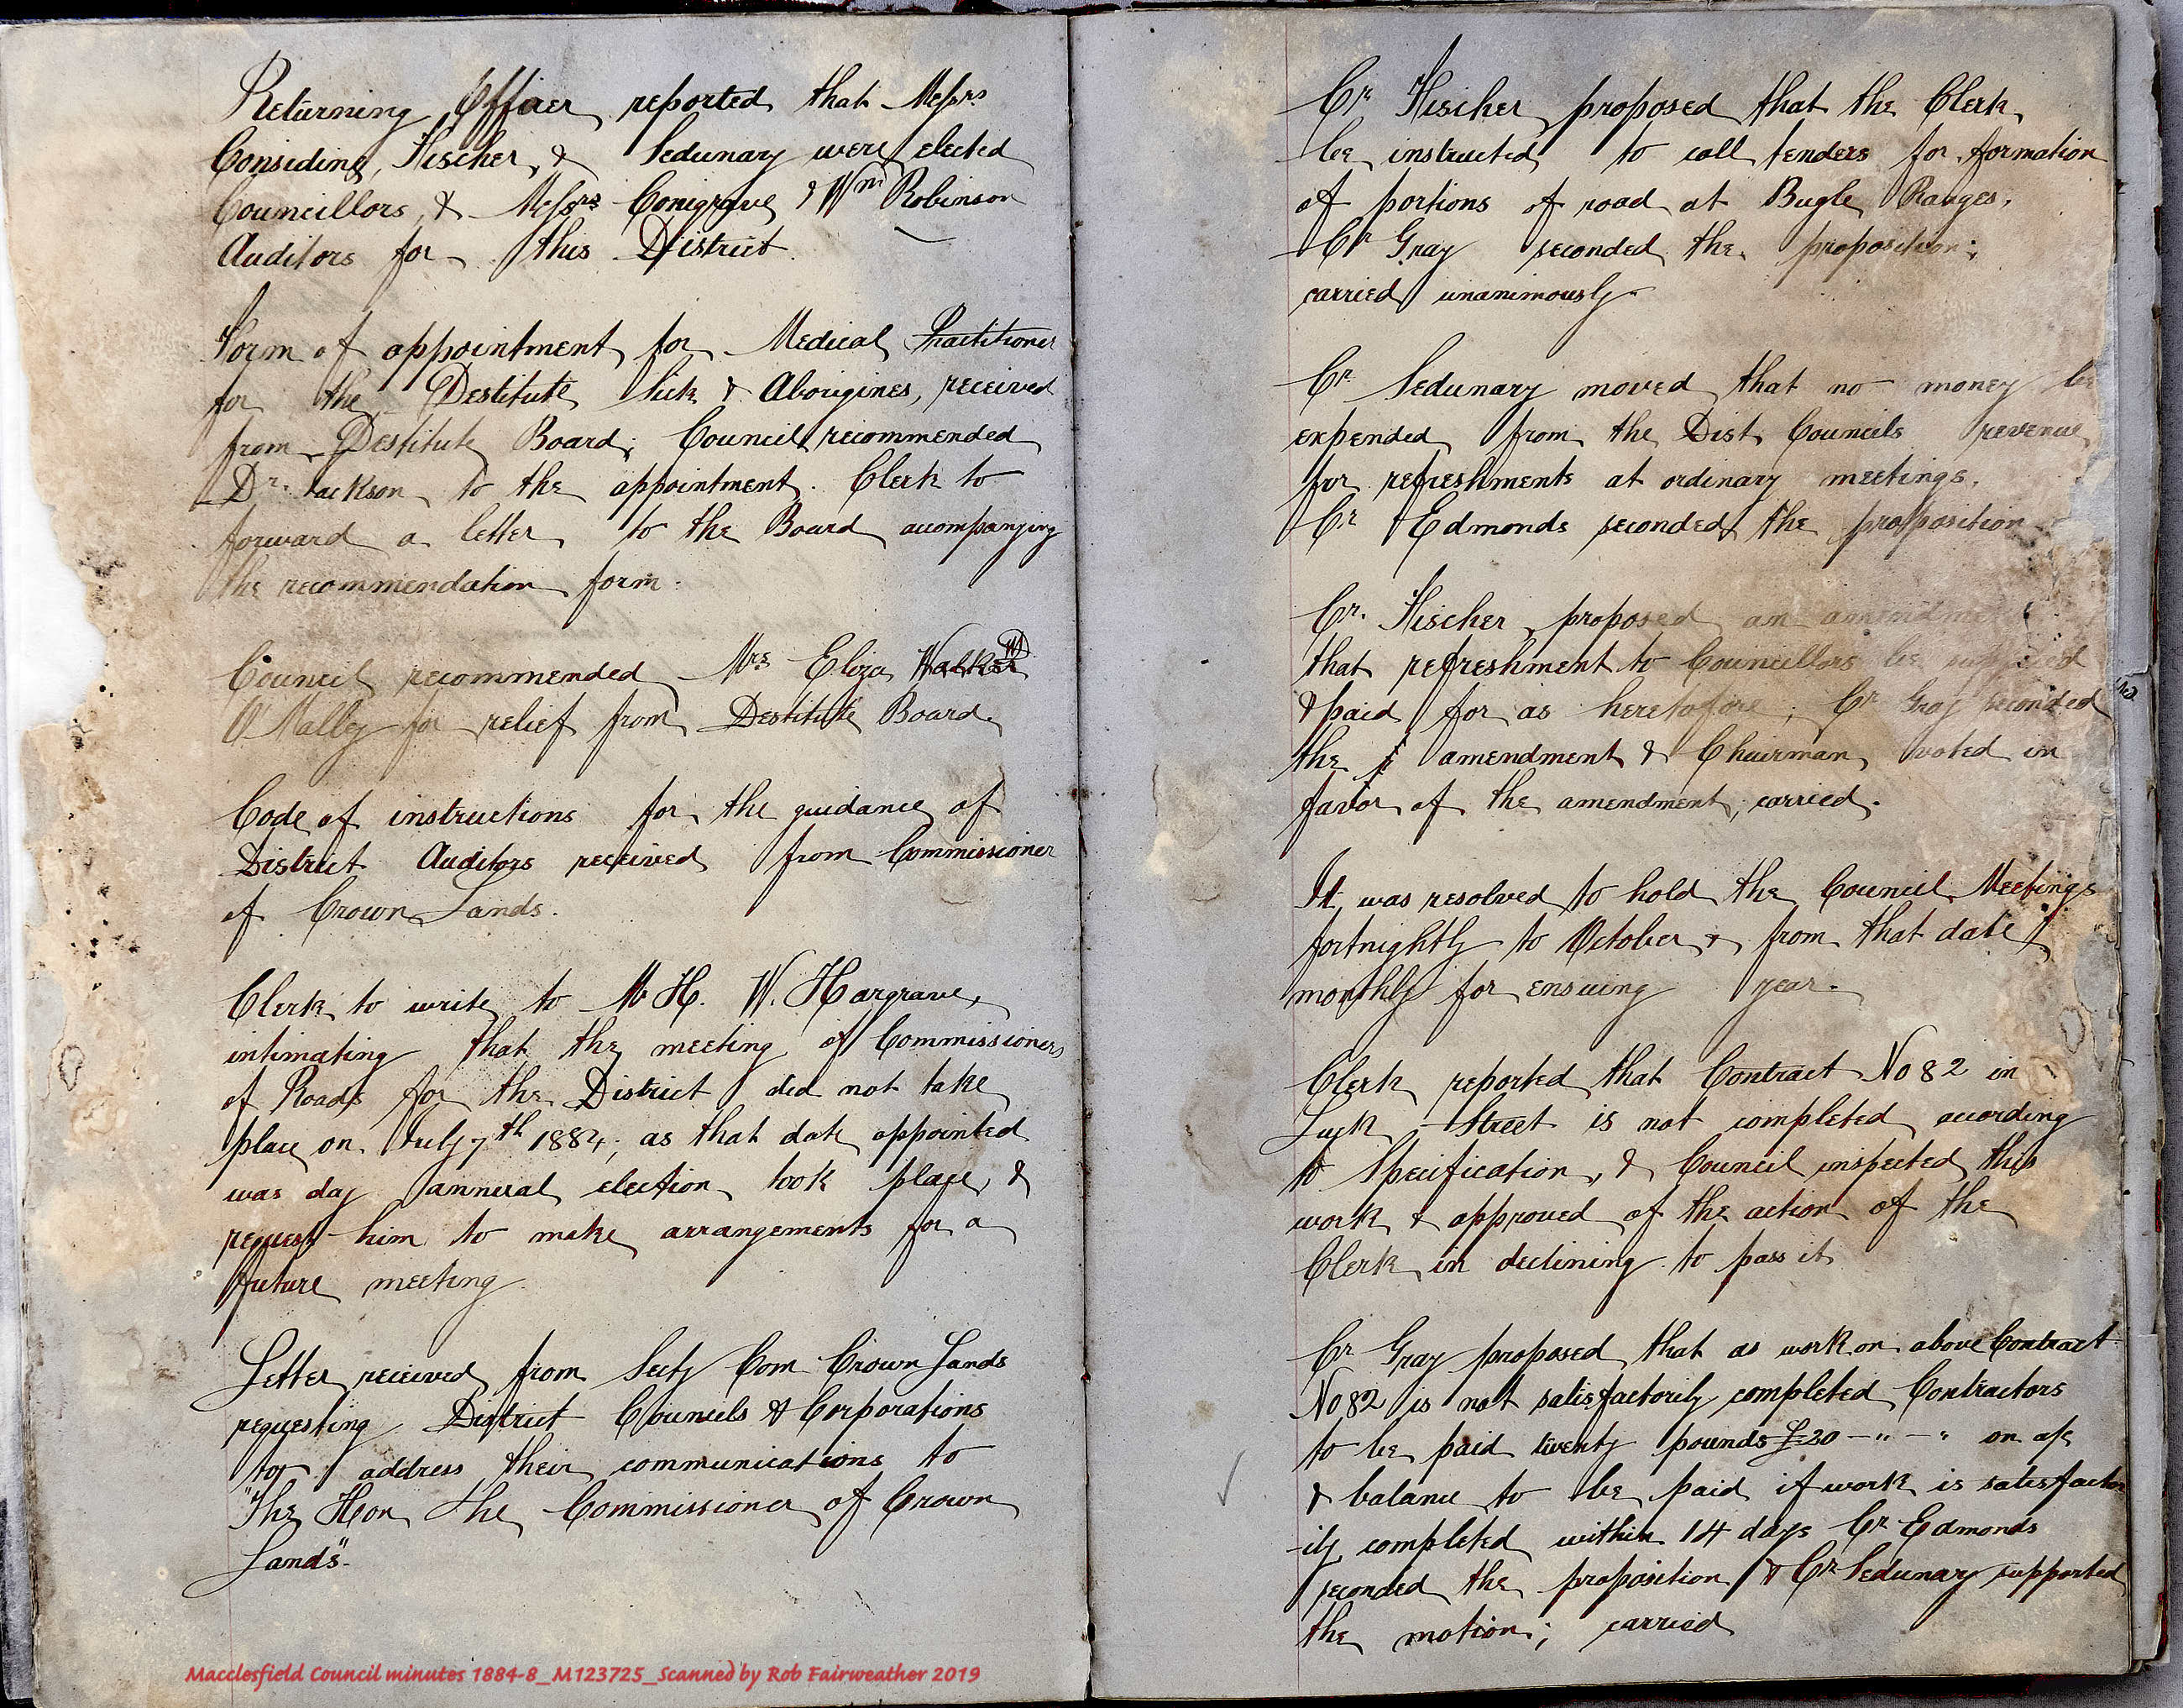 Returning Officer reported that Messrs
Considine, Fischer, & Sedunary were elected
Councillors, & Messrs Conigrave & Wm Robinson
Auditors for this District.
Form of appointment for Medical Practitioner
for the Destitute Sick & Aborigines, received
from Destitute Board; Council recommended
Dr. Jackson to the appointment. Clerk to
forward a letter to the Board acompanying
the recommendation form.
Council recommended Mrs Eliza Walker
O'Malley for relief from Destitute Board.
Code of instructions for the guidance of
District Auditors received from Commissioner
of Crown Lands.
Clerk to write to Mr H. W. Hargrave,
intimating that the meeting of Commissioners
of Roads for the District did not take
place on July 7th 1884; as that date appointed
was day annual election took place, &
request him to make arrangements for a
future meeting.
Letter received from Secty Com Crown Lands
requesting District Councils & Corporations
to address their communications to
"The Hon the Commissioner of Crown
Lands".
Cr Fischer proposed that the Clerk
be instructed to call tenders for formation
of portions of road at Bugle Ranges,
Cr Gray seconded the proposition;
carried unanimously.
Cr. Sedunary moved that no money be
expended from the Dist Councils revenue
for refreshments at ordinary meetings.
Cr Edmonds seconded the proposition
Cr. Fischer proposed an amendment
that refreshment to Councillors be supplied
& paid for as heretofore; Cr Gray seconded
the amendment & Chairman voted in
favor of the amendment; carried.
It was resolved to hold the Council Meetings
fortnightly to October & from that date
monthly for ensuing year.
Clerk reported that Contract No 82 in
Luck Street is not completed according
to Specification, & Council inspected this
work & approved of the action of the
Clerk in declining to pass it
Cr Gray proposed that as work on above Contract
No 82 is not satisfactorily completed Contractors
to be paid twenty pounds £20 - " - " on a/c
& balance to be paid if work is satisfactor
-ily completed within 14 days Cr Edmonds
seconded the proposition & Cr Sedunary supported
the motion; carried
Macclesfield Council minutes 1884-8_M123725_Scanned by Rob Fairweather 2019